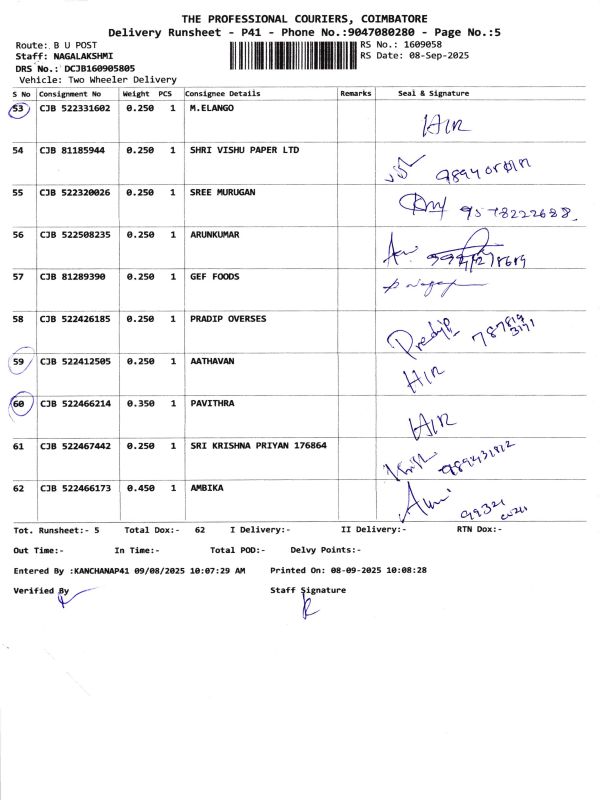 THE PROFESSIONAL COURIERS, COIMBATORE
Delivery Runsheet - P41 - Phone No.:9047080280 - Page No.:5
Route: B U POST RS No.: 1609058
Staff: NAGALAKSHMI RS Date: 08-Sep-2025
DRS No.: DCJB160905805
Vehicle: Two Wheeler Delivery
S No Consignment No Weight PCS Consignee Details Remarks Seal & Signature
53 CJB 522331602 0.250 1 M.ELANGO
H/R
54 CJB 81185944 0.250 1 SHRI VISHU PAPER LTD
55 CJB 522320026 0.250 1 SREE MURUGAN
9578222688
56 CJB 522508235 0.250 1 ARUNKUMAR
57 CJB 81289390 0.250 1 GEF FOODS
58 CJB 522426185 0.250 1 PRADIP OVERSES
Pradip
59 CJB 522412505 0.250 1 AATHAVAN
H/R
60 CJB 522466214 0.350 1 PAVITHRA
H/R
61 CJB 522467442 0.250 1 SRI KRISHNA PRIYAN 176864
62 CJB 522466173 0.450 1 AMBIKA
Tot. Runsheet:- 5 Total Dox:- 62 I Delivery:- II Delivery:- RTN Dox:-
Out Time:- In Time:- Total POD:- Delvy Points:-
Entered By :KANCHANAP41 09/08/2025 10:07:29 AM Printed On: 08-09-2025 10:08:28
Verified By Staff Signature